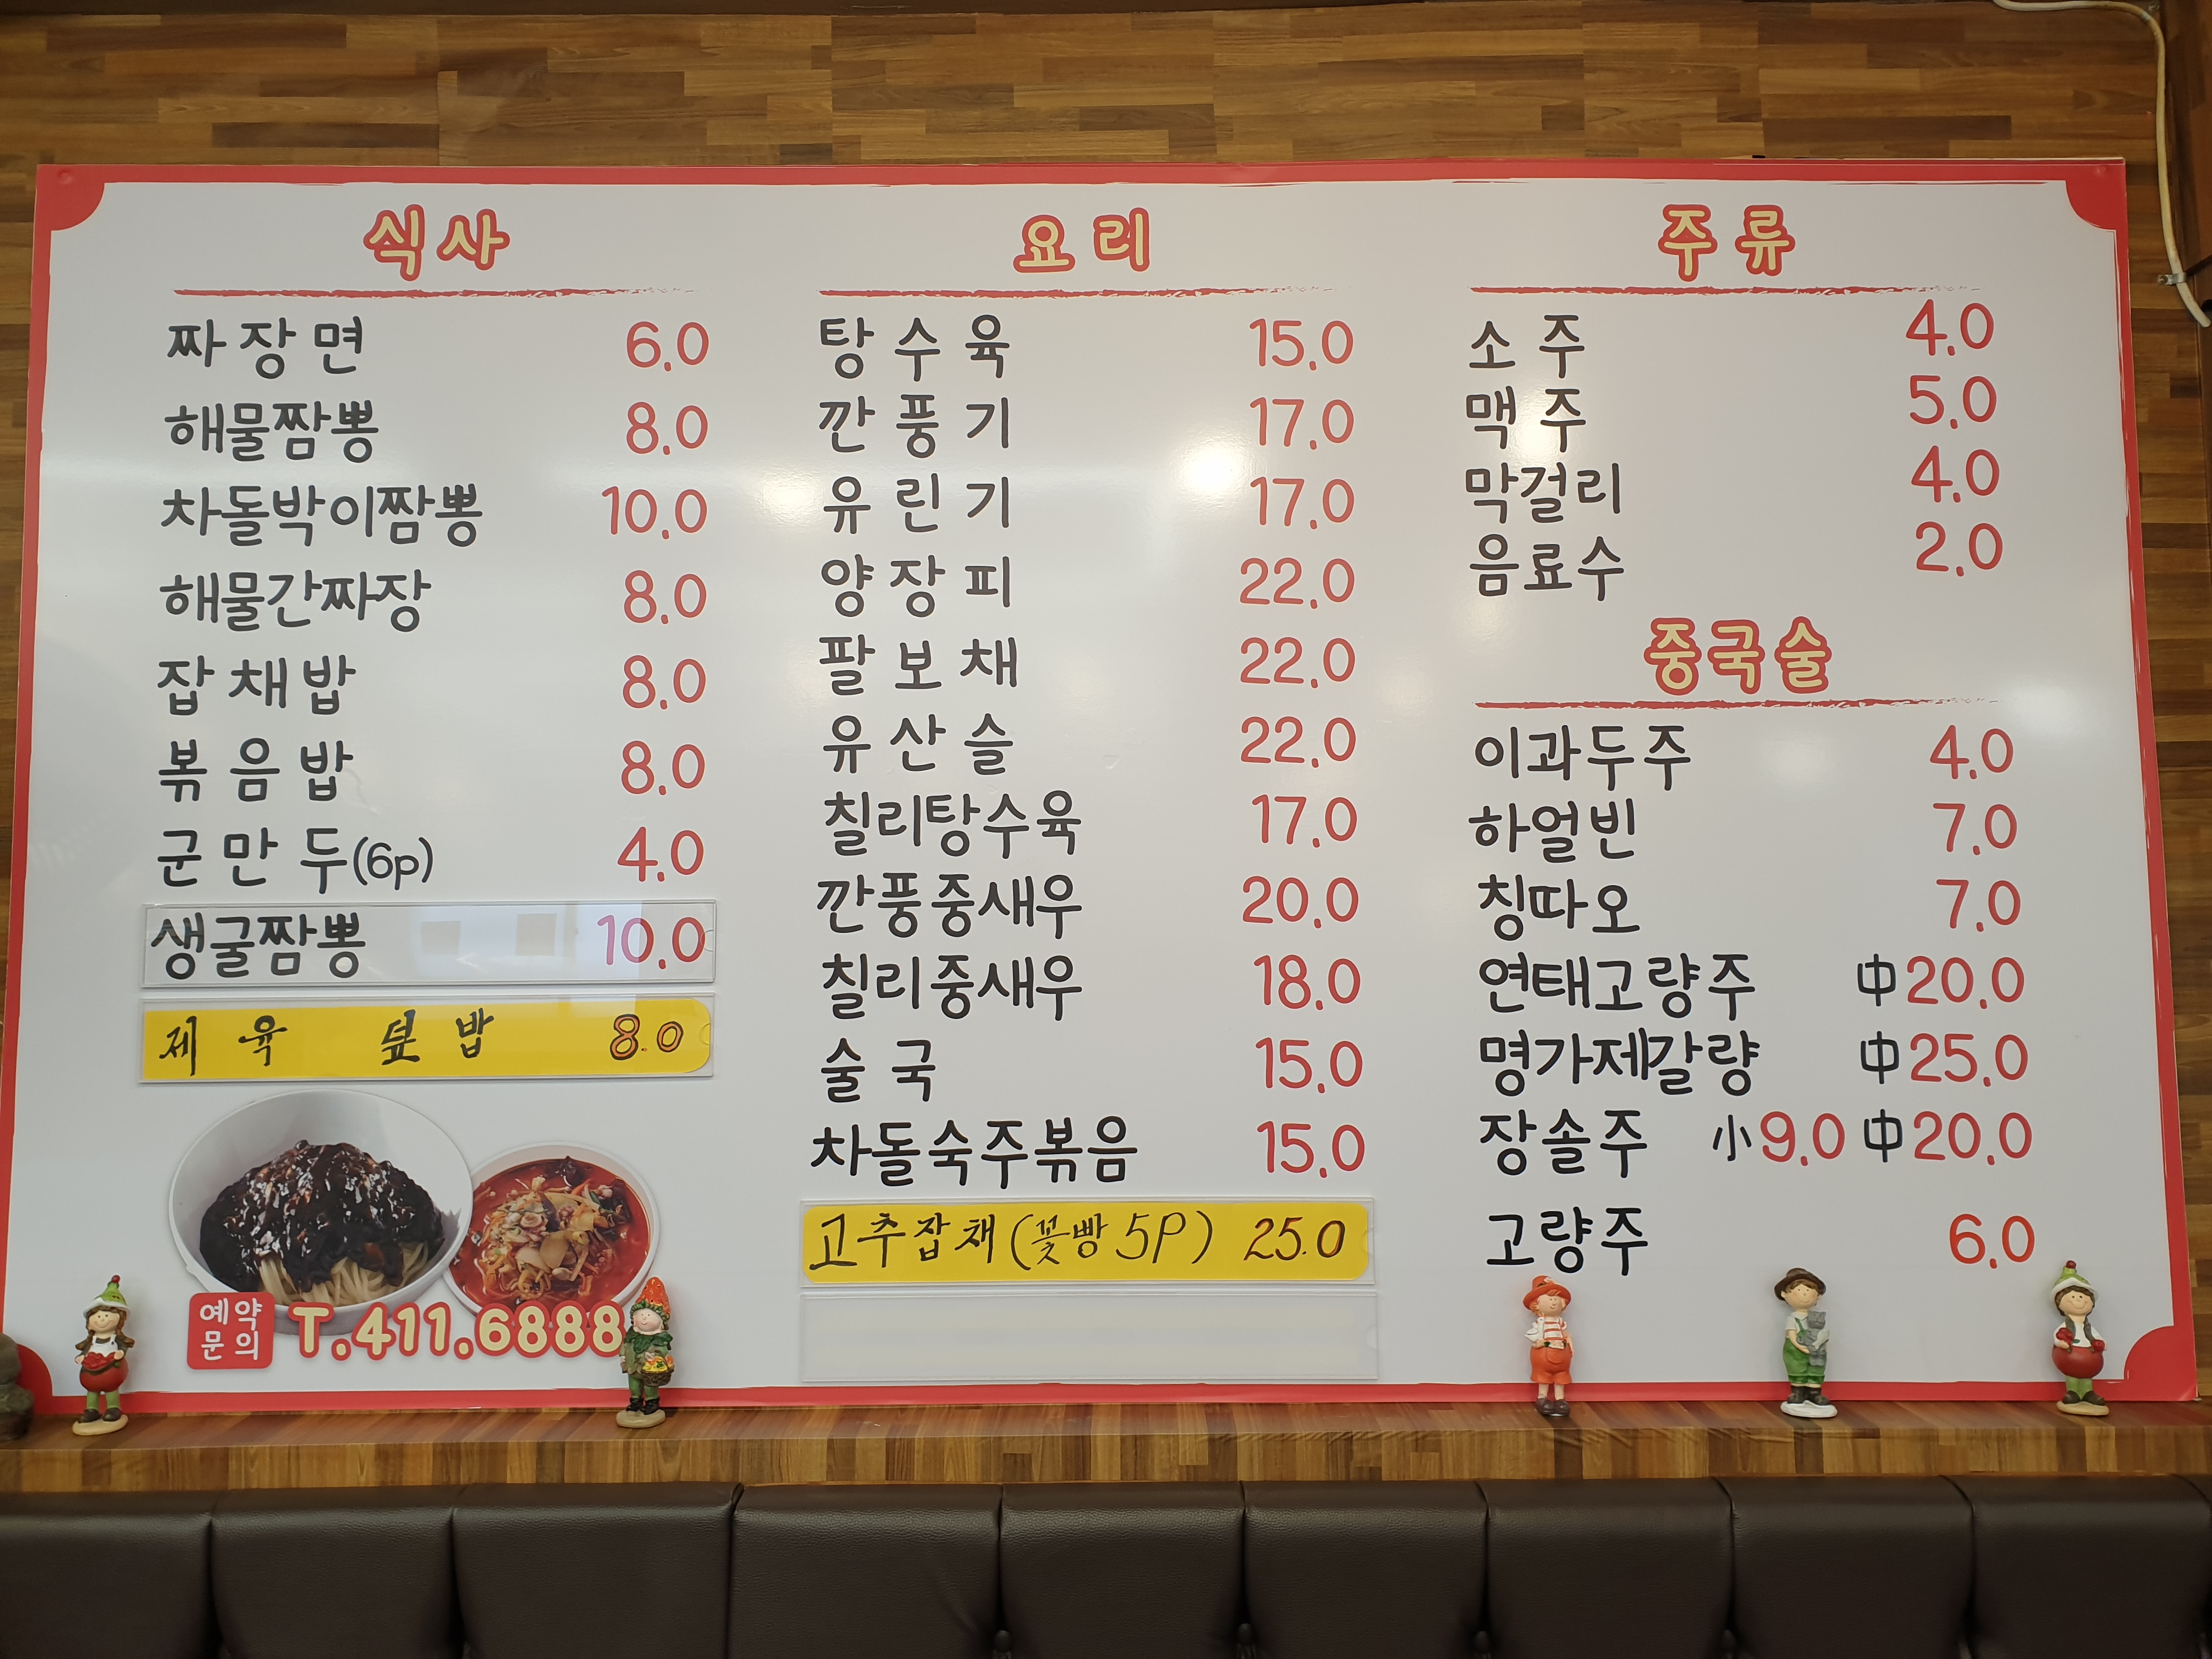 식사
짜장면 6.0
해물짬뽕 8.0
차돌박이짬뽕 10.0
해물간짜장 8.0
잡채밥 8.0
볶음밥 8.0
군만두(6p) 4.0
생굴짬뽕 10.0
제육덮밥 8.0
예약문의 T.411.6888
요리
탕수육 15.0
깐풍기 17.0
유린기 17.0
양장피 22.0
팔보채 22.0
유산슬 22.0
칠리탕수육 17.0
깐풍중새우 20.0
칠리중새우 18.0
술국 15.0
차돌숙주볶음 15.0
고추잡채(꽃빵 5P) 25.0
주류
소주 4.0
맥주 5.0
막걸리 4.0
음료수 2.0
중국술
이과두주 4.0
하얼빈 7.0
칭따오 7.0
연태고량주 中20.0
명가제갈량 中25.0
장솔주 小9.0 中20.0
고량주 6.0